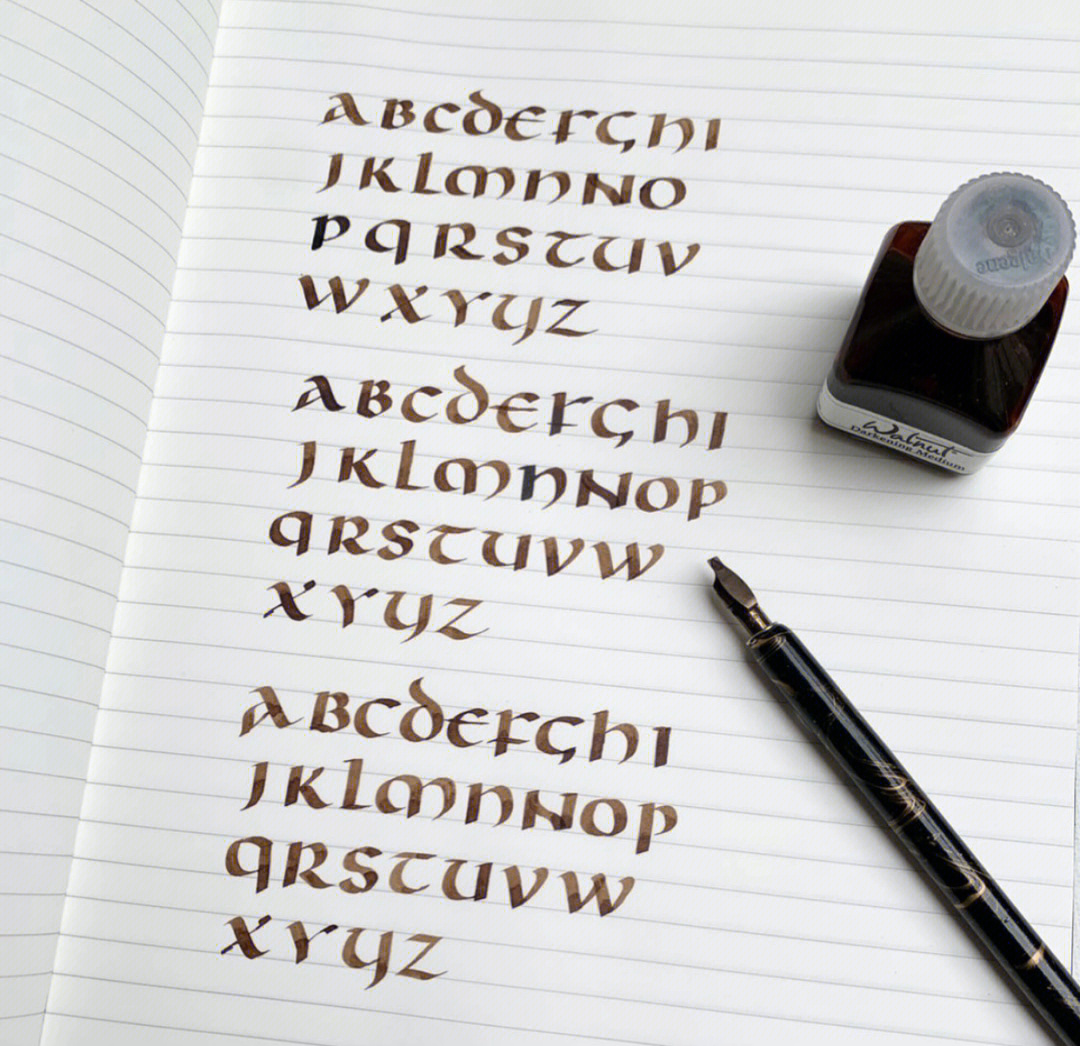 ABCdEFGhI
JKLmnNO
PqRSTUV
WXYyZ
ABCdEFGhI
JKLmnNOP
qRSTUVW
XYyZ
ABCdEFGhI
JKlmnNOP
qRSTUVW
XYyZ
Nalgene
Walnut
Darkening Medium